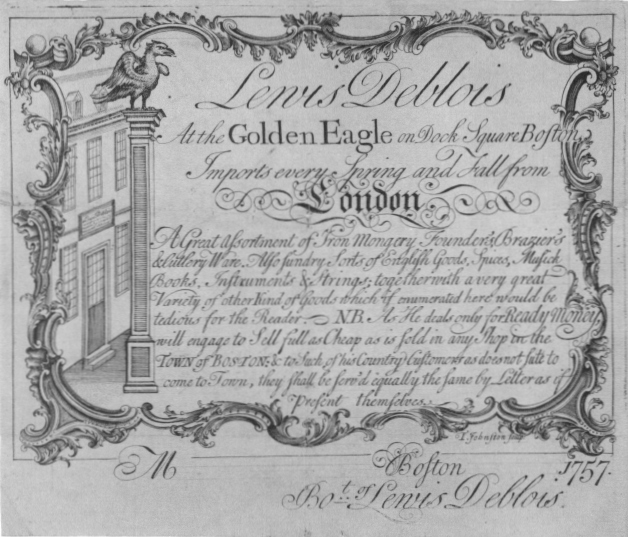 Lewis Deblois
At the Golden Eagle on Dock Square Boston,
Imports every Spring and Fall from
London.
A Great Assortment of Iron Mongery Founder's, Brazier's
& Cutlery Ware. Also sundry Sorts of English Goods, Spices, Musick
Books, Instruments & Strings; together with a very great
Variety of other Kind of Goods which if enumerated here would be
tedious for the Reader. N.B. As He deals only for Ready Money,
will engage to Sell full as Cheap as is sold in any Shop in the
TOWN of BOSTON; & to such of his Country Customers as does not suit to
come to Town, they shall be serv'd equally the same by Letter as if
Present themselves.
T. Johnston sculp
M Boston 1757.
Bo.t of Lewis Deblois.